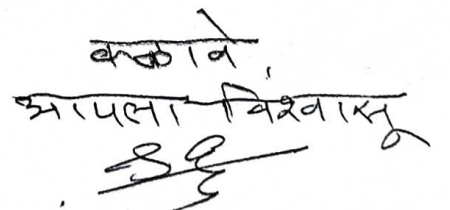 कळावे,
आपला विश्वासू